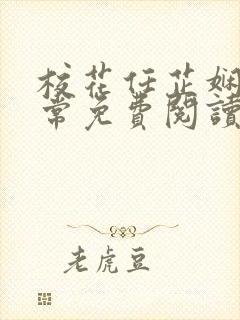 校花任芷娴
常免費閱讀
老虎豆